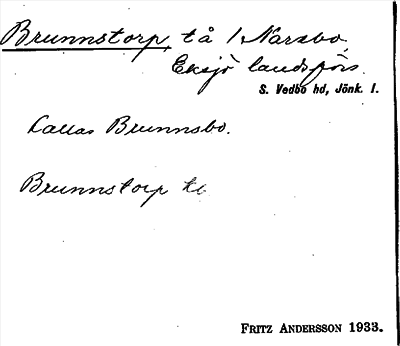 Brunnstorp, tå / Narsbo,
Eksjö landsförs.
S. Vedbo hd, Jönk. l.
Kallas Brunnsbo.
Brunnstorp
FRITZ ANDERSSON 1933.